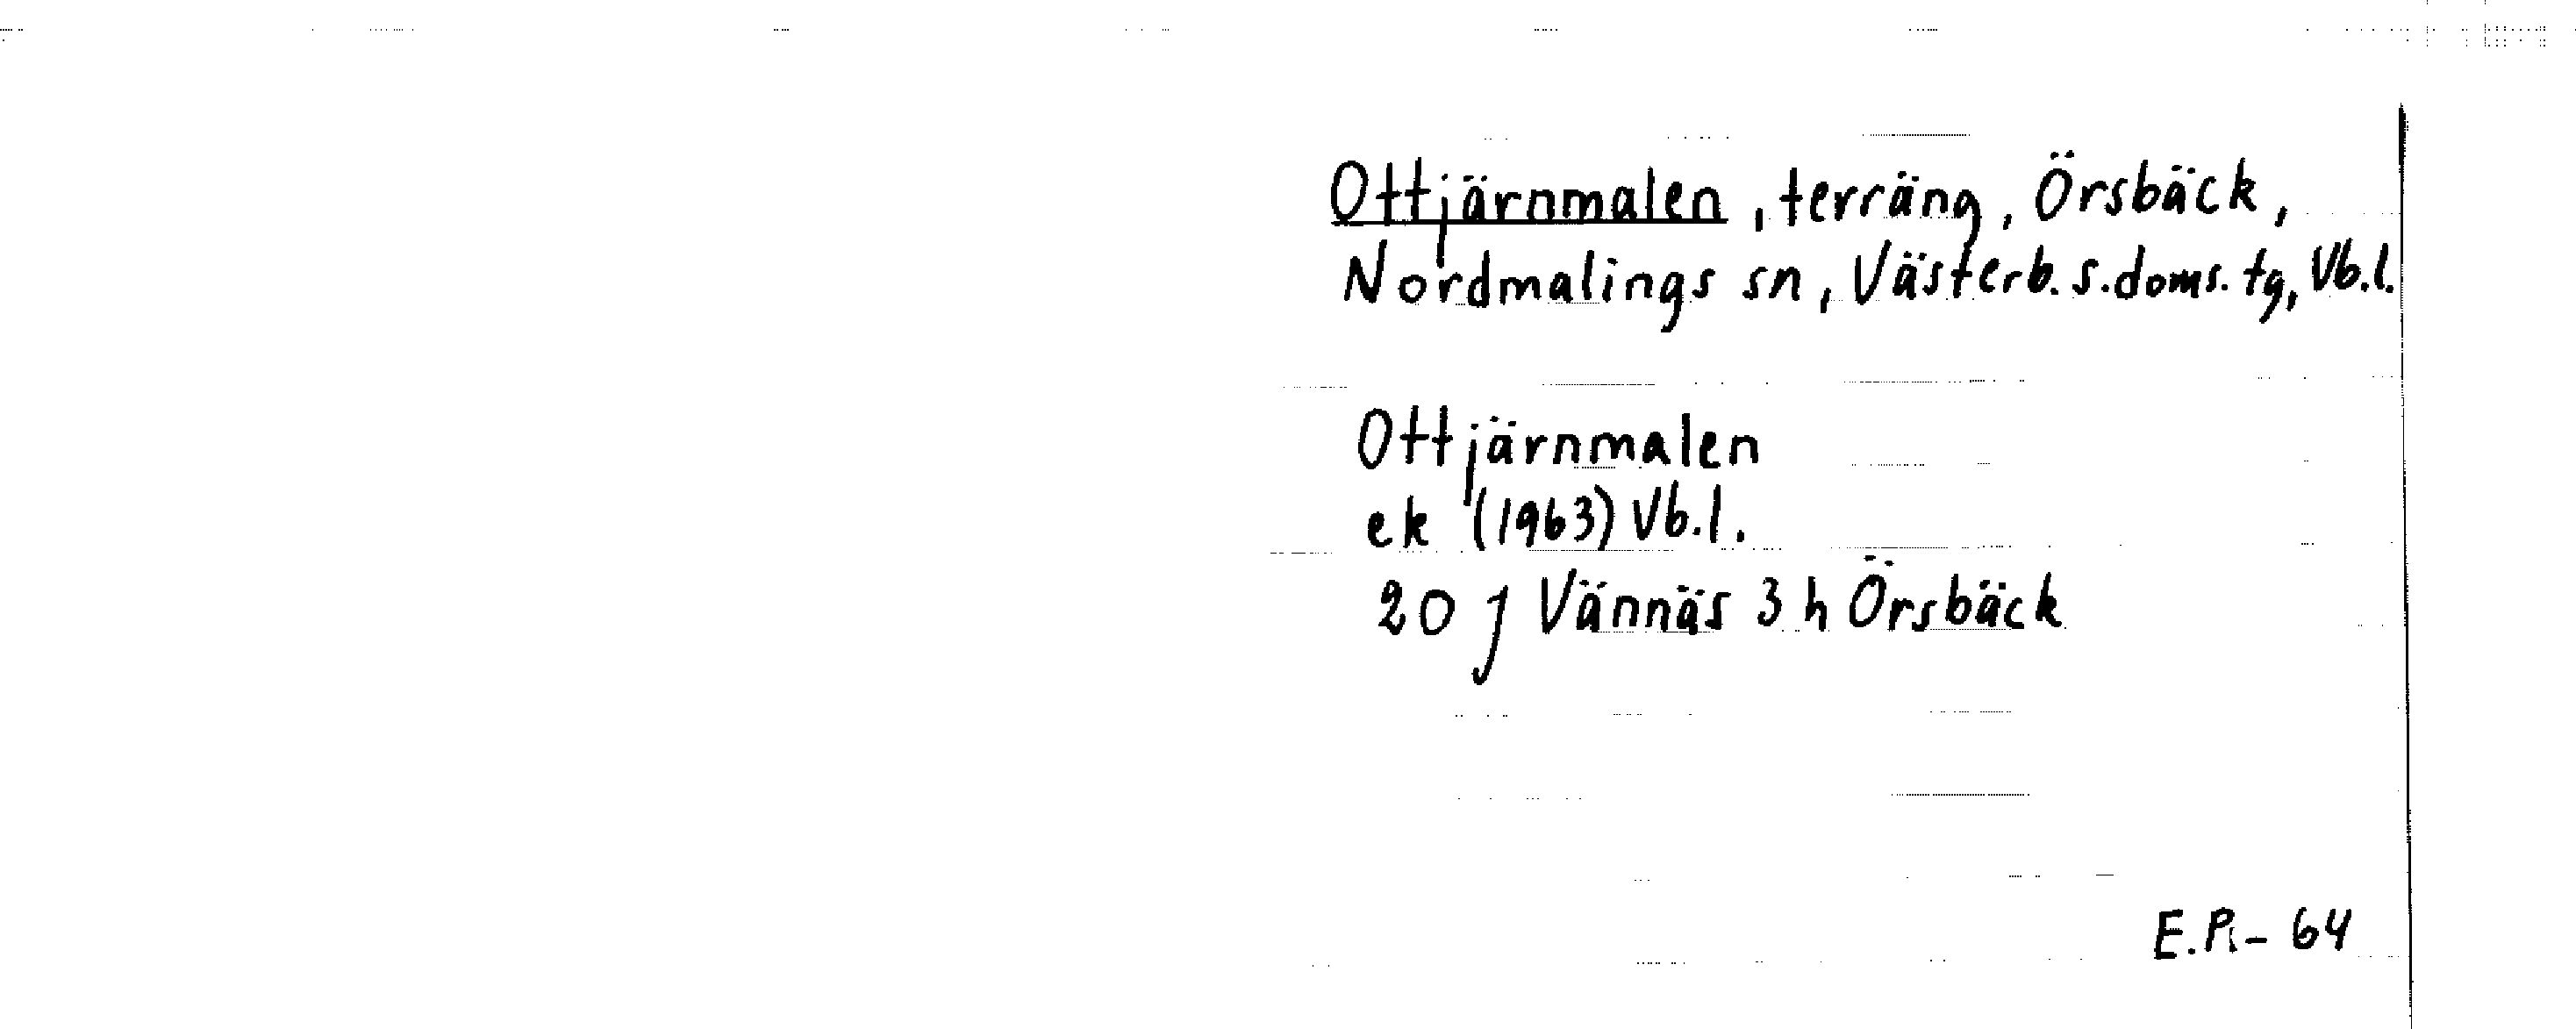 Ottjärnmalen, terräng, Örsbäck,
Nordmalings sn, Västerb. s. doms. tg, Vb.l.
Ottjärnmalen
ek (1963) Vb.l.
20 J Vännäs 3 h Örsbäck
E.Pi- 64